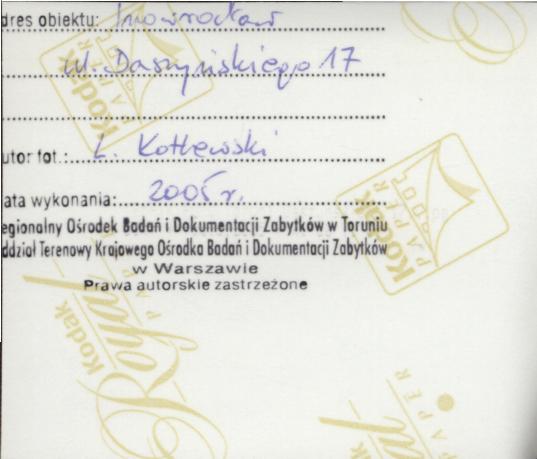 dres obiektu: Inowrocław
ul. Daszyńskiego 17
utor fot.: L. Kotlewski
ata wykonania: 2005 r.
egionalny Ośrodek Badań i Dokumentacji Zabytków w Toruniu
ddział Terenowy Krajowego Ośrodka Badań i Dokumentacji Zabytków
w Warszawie
Prawa autorskie zastrzeżone
Kodak
PAPER
Kodak
PAPER
Kodak
Royal
PAPER
Kodak
PAPER